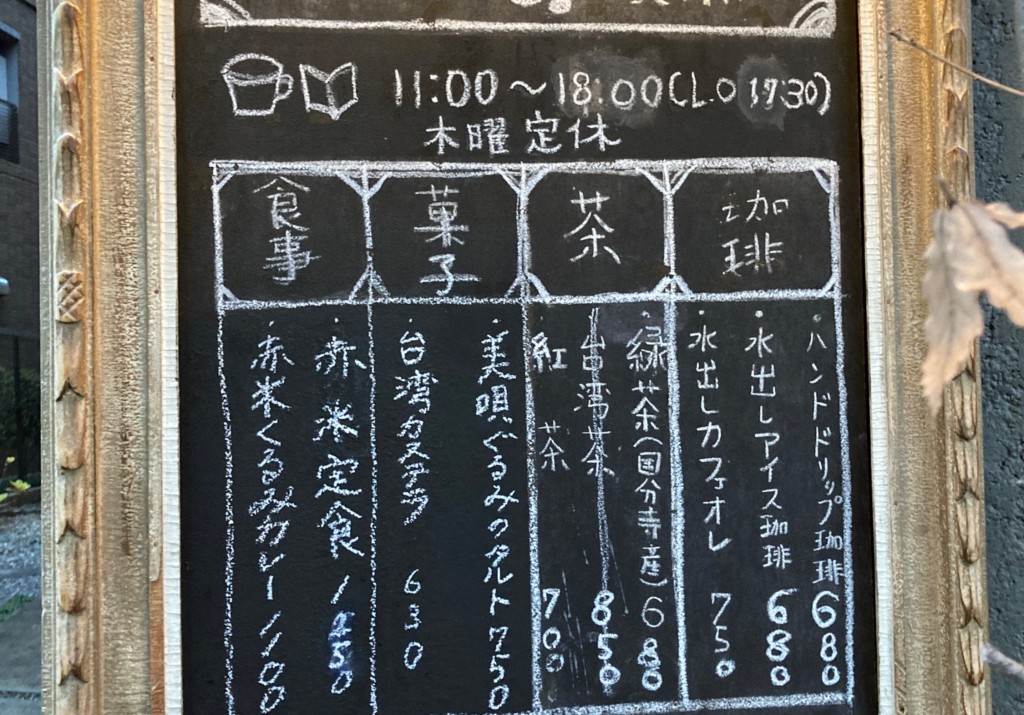 11:00～18:00(L.O 17:30)
木曜定休
珈琲
・ハンドドリップ珈琲 680
・水出しアイス珈琲 680
・水出しカフェオレ 750
茶
・緑茶(国分寺産) 680
台湾茶 850
紅茶 700
菓子
・美唄ぐるみのタルト 750
・台湾カステラ 630
食事
・赤米定食 1250
・赤米くるみカレー 1100